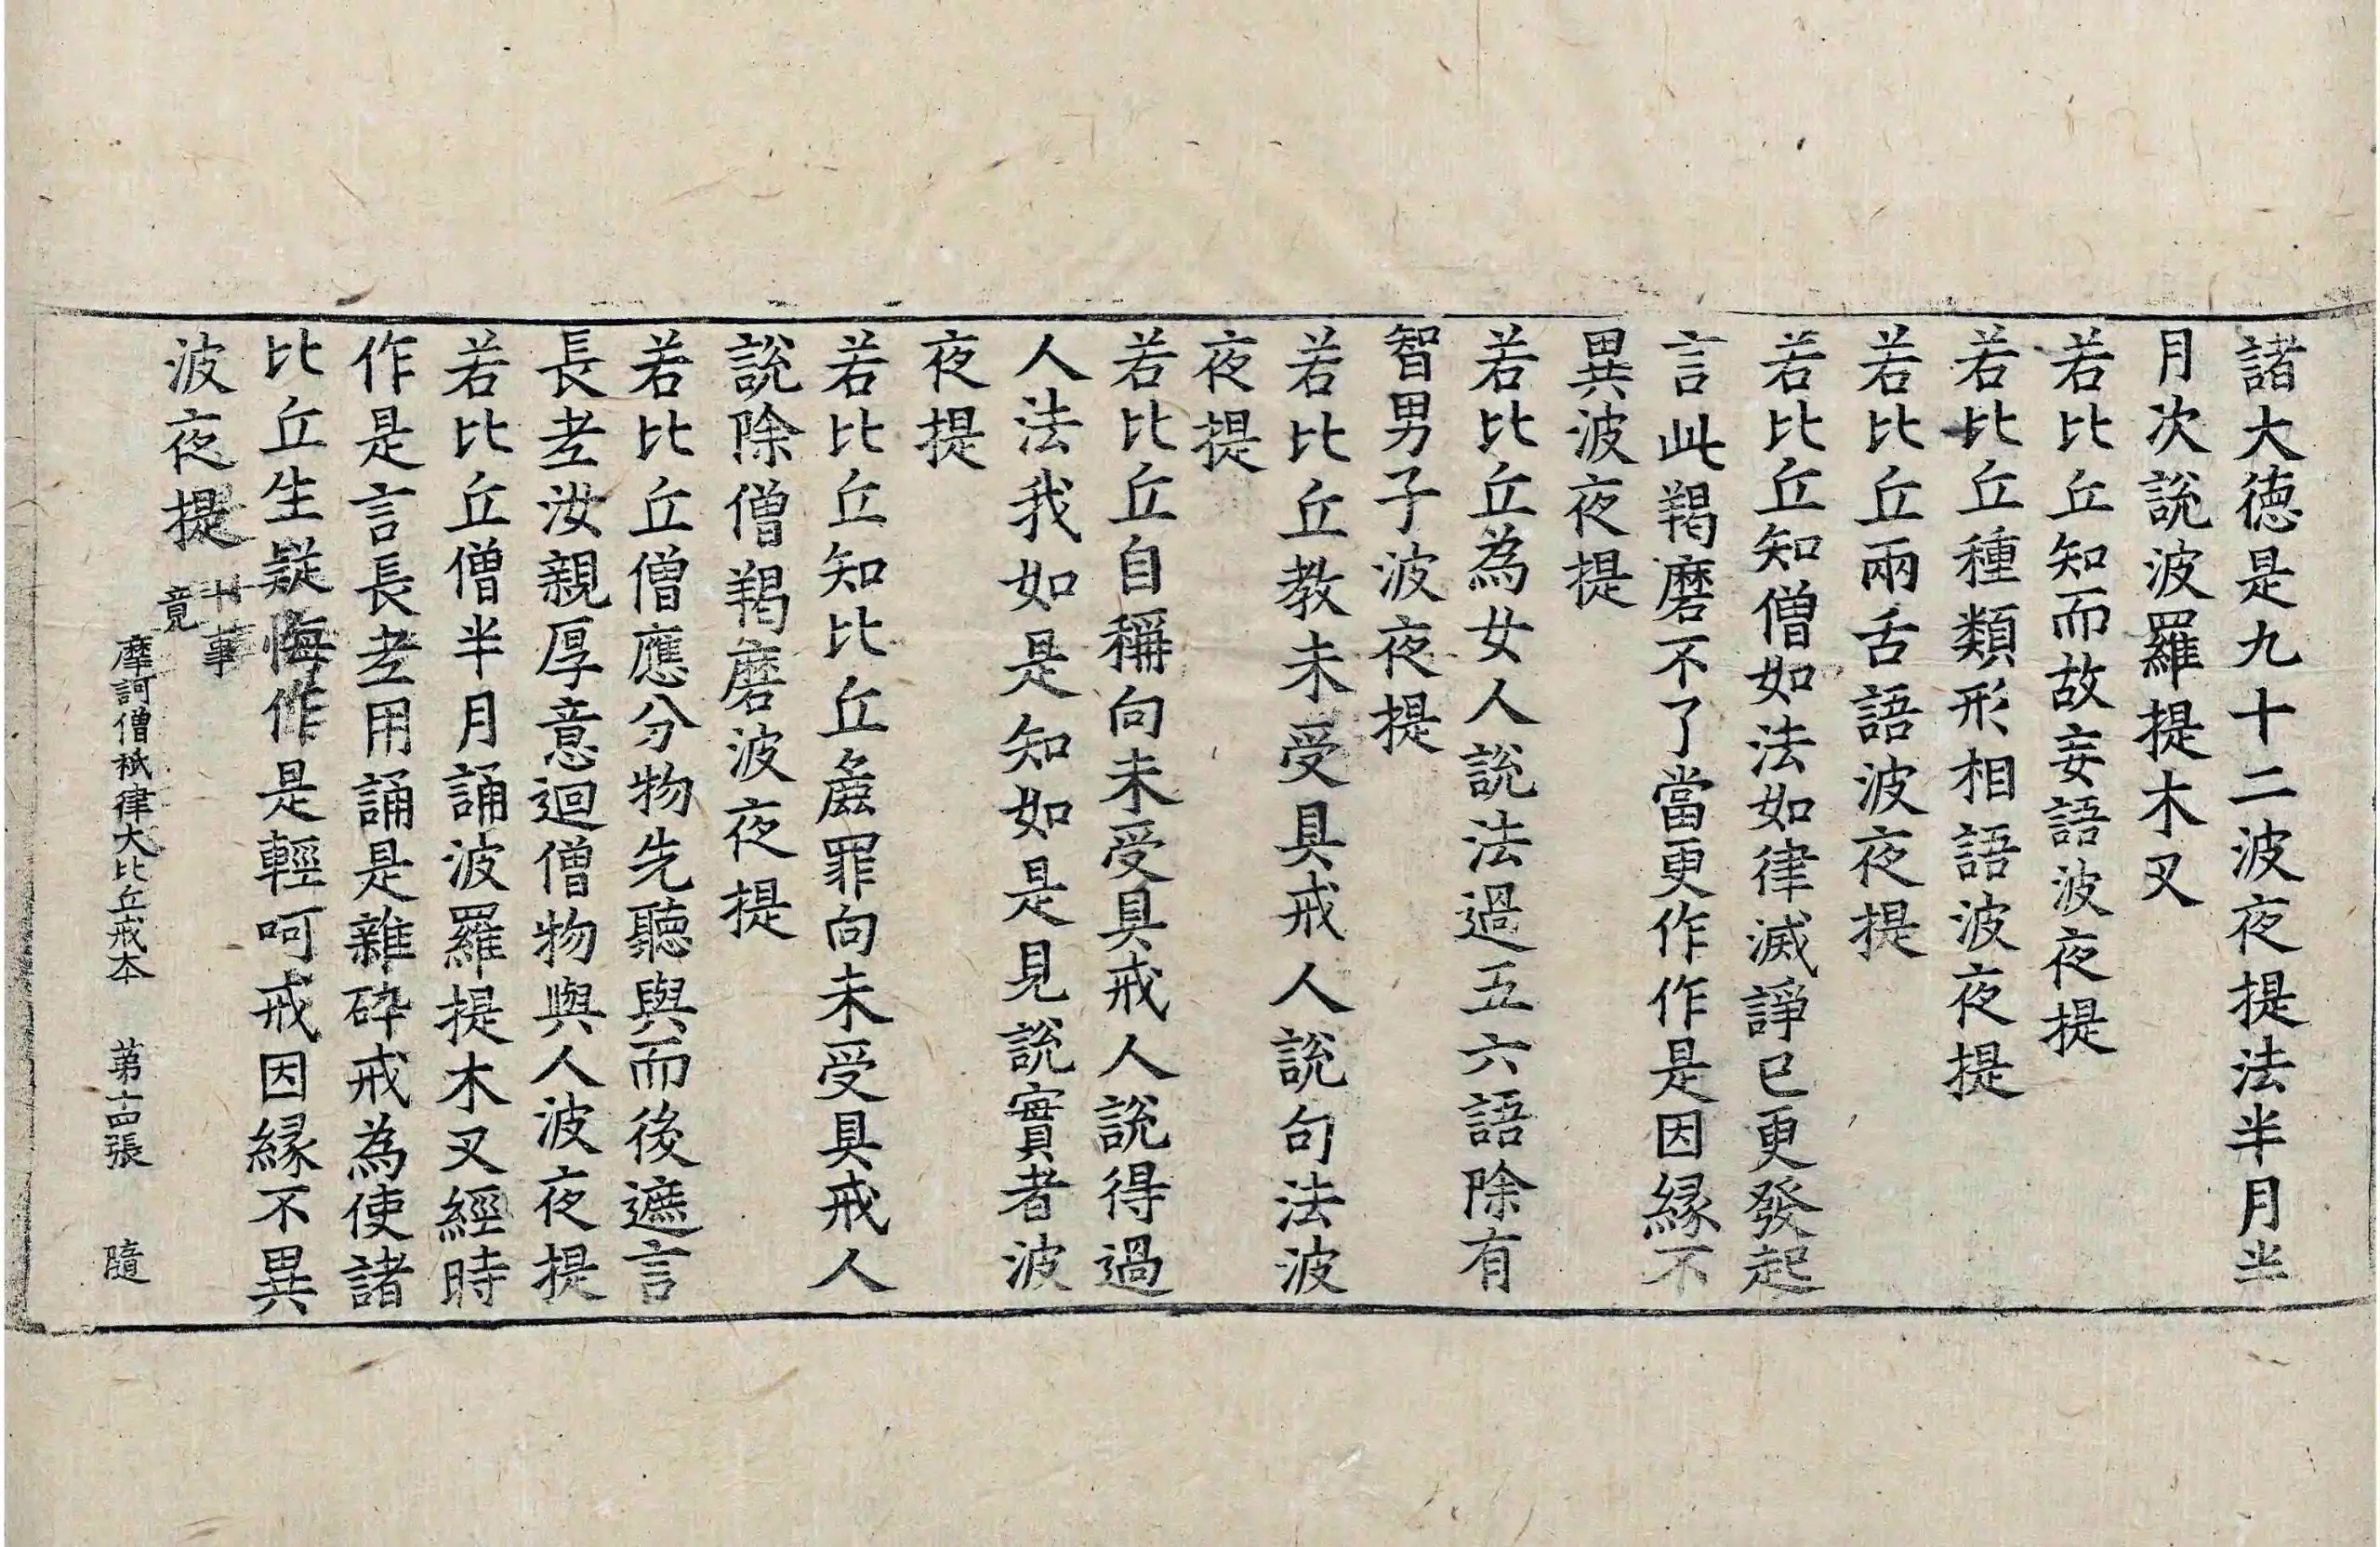 諸大徳是九十二波夜提法半月半
月次說波羅提木叉
若比丘知而故妄語波夜提
若比丘種類形相語波夜提
若比丘兩舌語波夜提
若比丘知僧如法如律滅諍已更發起
言此羯磨不了當更作作是因縁不
異波夜提
若比丘為女人說法過五六語除有
智男子波夜提
若比丘教未受具戒人說句法波
夜提
若比丘自稱向未受具戒人說得過
人法我如是知如是見說實者波
夜提
若比丘知比丘麁罪向未受具戒人
說除僧羯磨波夜提
若比丘僧應分物先聽與而後遮言
長老汝親厚意迴僧物與人波夜提
若比丘僧半月誦波羅提木叉經時
作是言長老用誦是雜碎戒為使諸
比丘生疑悔作是輕呵戒因縁不異
波夜提 一竟
摩訶僧祇律大比丘戒本 第十四張 隨